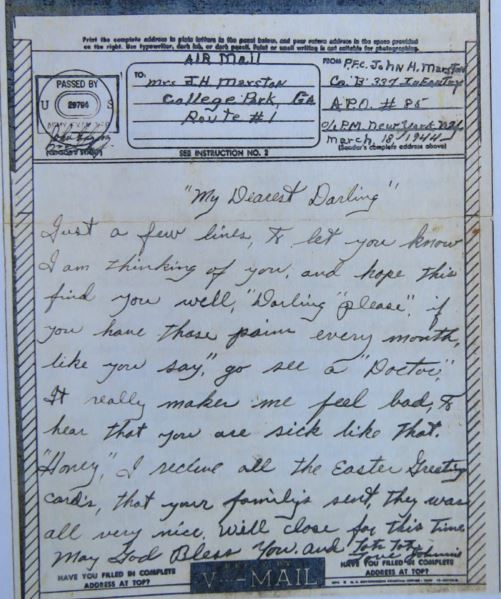 Print the complete address in plain letters in the panel below, and your return address in the space provided
on the right. Use typewriter, dark ink, or dark pencil. Faint or small writing is not suitable for photographing.
AIR MAIL
TO:
Mrs J. H. Marston
College Park, GA
Route #1
FROM
P.F.C. John H. Marston
Co. "B" 337 Infantry
A.P.O. # 85
c/o P.M. New York N.Y.
March, 18, 1944
(Sender's complete address above)
PASSED BY
U S
ARMY EXAMINER
(CENSOR'S STAMP)
SEE INSTRUCTION NO. 2
"My Dearest Darling"
Just a few lines, to let you know
I am thinking of you, and hope this
find you well, "Darling" "please", if
you have those pains every month,
like you say," go see a "Doctor,"
It really makes me feel bad, to
hear that you are sick like that.
"Honey", I recieve all the Easter Greeting
card's, that your family's sent, they was
all very nice. Will close for this time
May God Bless You. and Tote Tote
Love Johnnie
HAVE YOU FILLED IN COMPLETE
ADDRESS AT TOP?
V - MAIL
HAVE YOU FILLED IN COMPLETE
ADDRESS AT TOP?